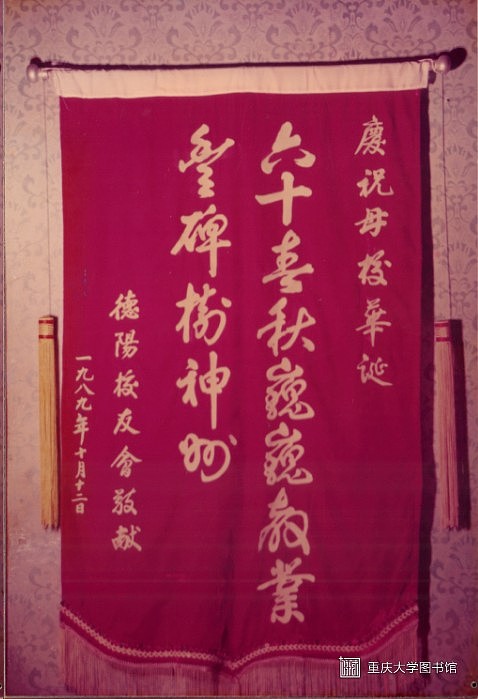 慶祝母校華誕
六十春秋巍巍教業
豐碑樹神州
德陽校友會敬献
一九八九年十月十二日
重庆大学图书馆